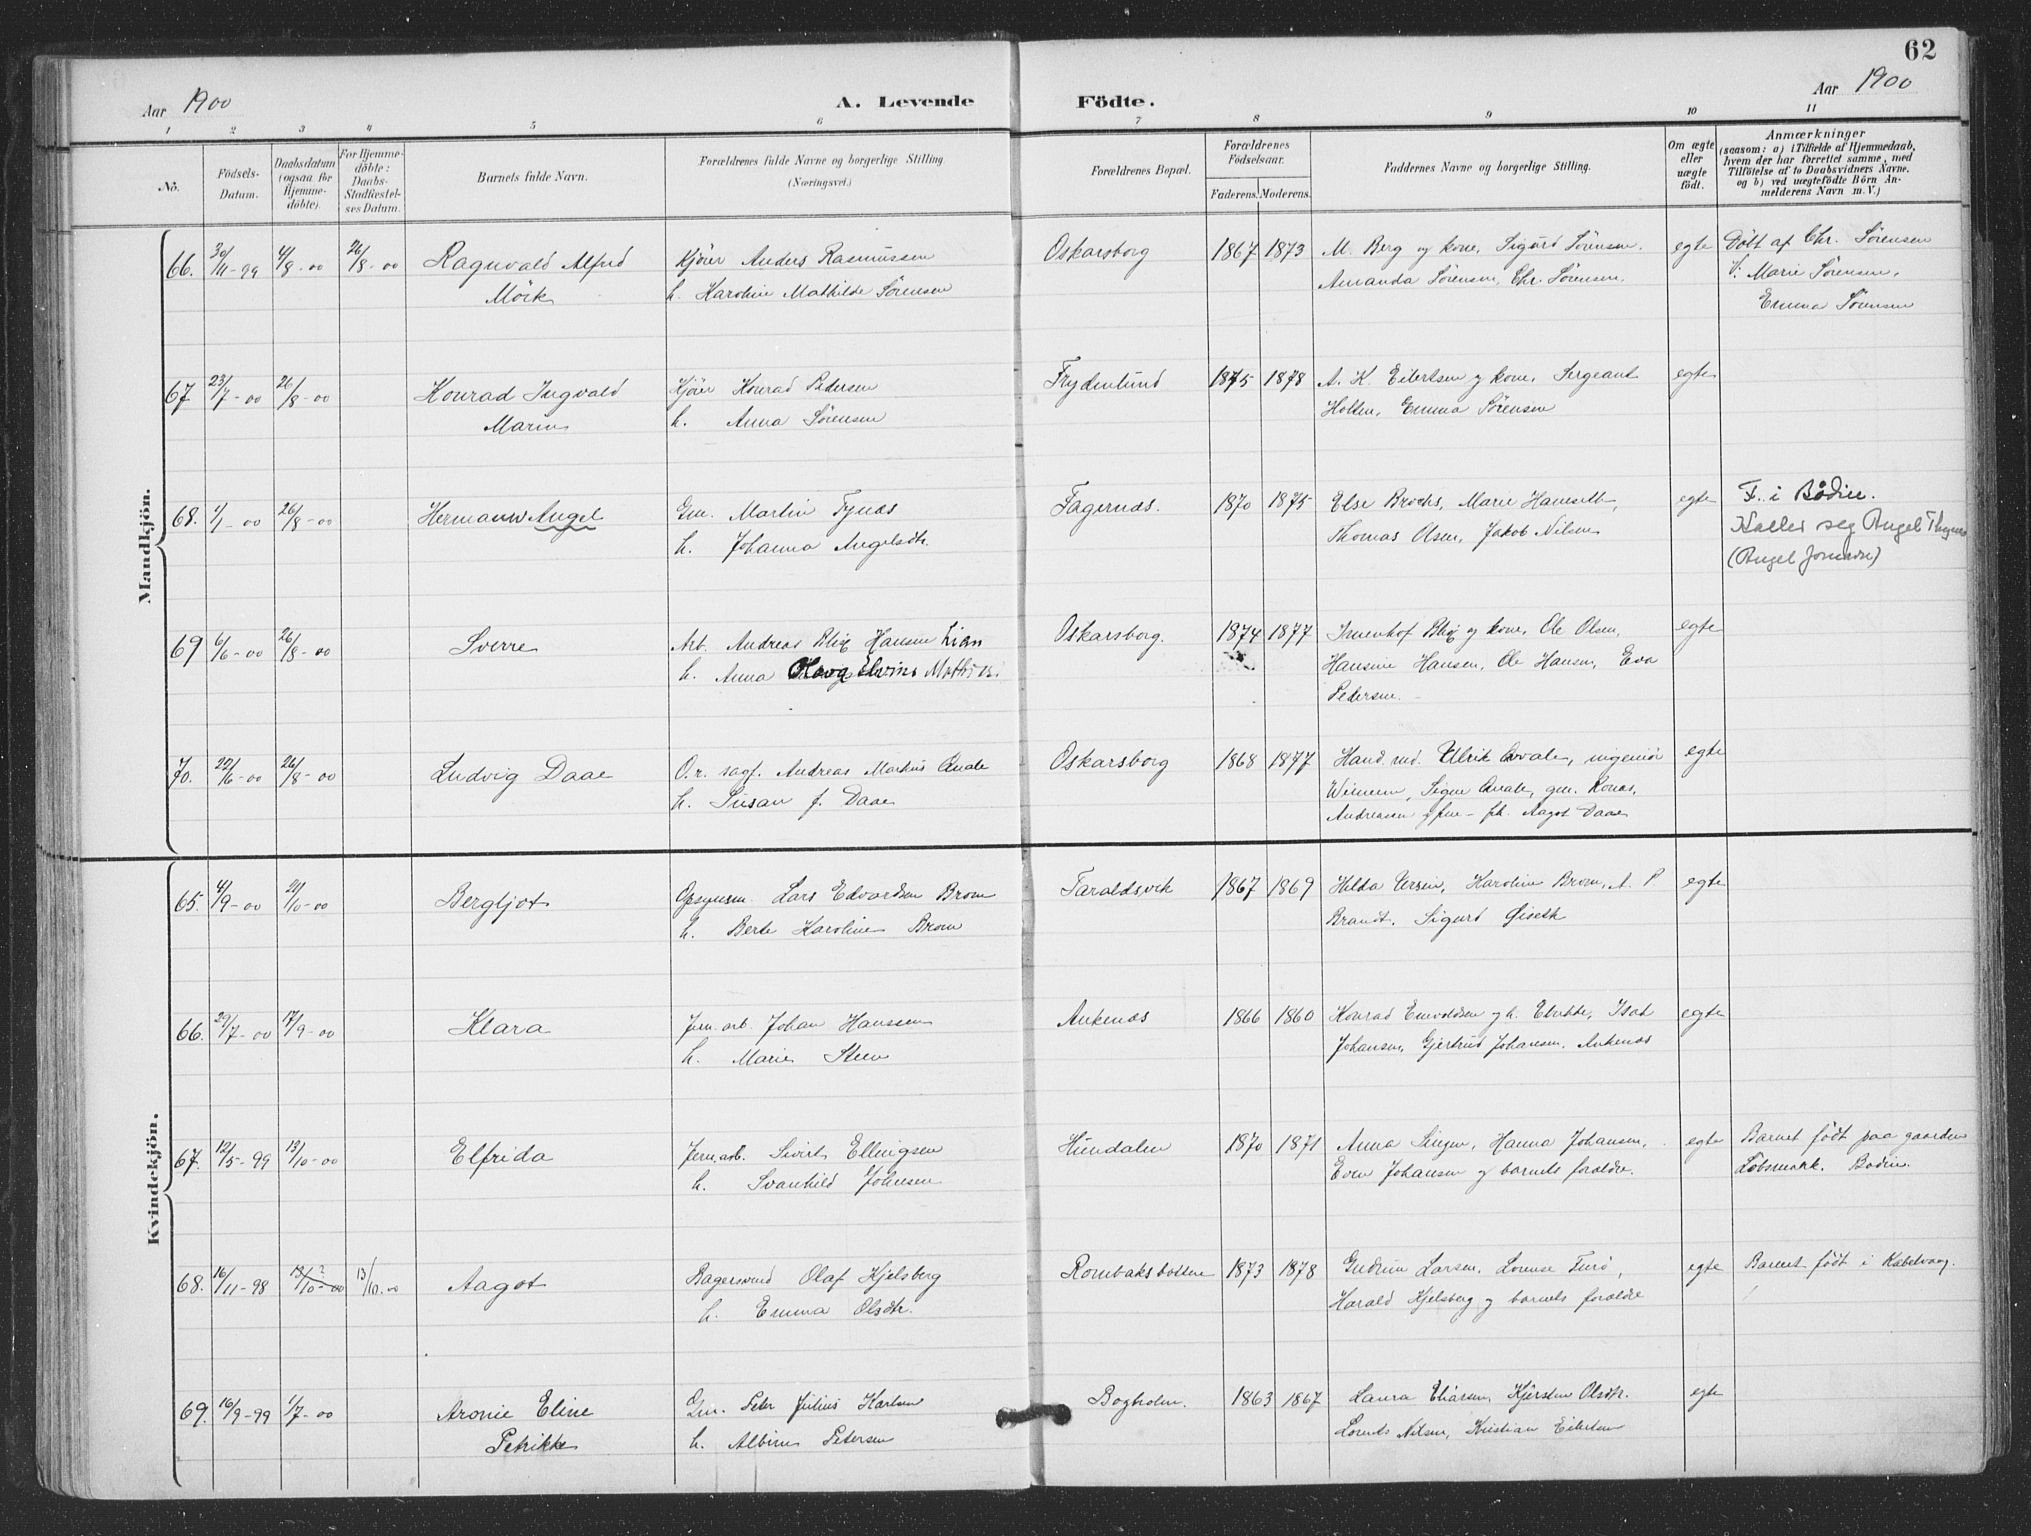 62
Aar 1900
A. Levende Födte.
Aar 1900
1 2 3 4 5 6 7 8 9 10 11
No.
Födsels-Datum.
Daabsdatum (ogsaa for Hjemme-döbte).
For Hjemme-döbte: Daabs-Stadfestel-ses Datum.
Barnets fulde Navn.
Forældrenes fulde Navne og borgerlige Stilling.
(Næringsvei.)
Forældrenes Bopæl.
Forældrenes Födselsaar.
Faderens. Moderens.
Faddernes Navne og borgerlige Stilling.
Om ægte eller uægte födt.
Anmærkninger
(saasom: a) i Tilfælde af Hjemmedaab, hvem der har forrettet samme, med Tilföielse af to Daabsvidners Navne, og b) ved uægtefödte Börn An-melderens Navn m. V.)
Mandkjön.
66. 30/11-99 4/8-00 26/8-00 Ragnvald Alfred Kjører Anders Rasmussen Oskarsborg 1867 1873 M. Berg og kone, Sigurd Sørensen. egte Døbt af Chr. Sørensen
Mörk h. Karoline Mathilde Sørensen Amanda Sørensen, Chr. Sørensen. V. Marie Sørensen,
Emma Sørensen
67 23/7-00 26/8-00 Konrad Ingvald Kjører Konrad Pedersen Frydenlund 1875 1878 A. K. Eilertsen og kone, Sergeant egte
Marius h. Anna Sørensen Holten, Emma Sørensen
68. 1/1-00 26/8-00 Hermann Angel Gm. Martin Tynæs Fagernæs. 1870 1875 Else Brochs, Marie Hanseth, egte F. i Bodin.
h. Johanna Angelsdtr. Thomas Olsen, Jakob Nilsen Kaller seg Angel Thynes
(Angel Jonassen)
69 6/6-00 26/8-00 Sverre Arb. Andreas Blix Hansen Lian Oskarsborg. 1874 1877 Irnenhof Blix og kone, Ole Olsen, egte
h. Anna Elvine Mathis Hansine Hansen, Ole Hansen, Eva
Pedersen.
70. 22/6-00 26/8-00 Ludvig Daae O.r. sagf. Andreas Markus Qvale Oskarsborg 1868 1877 Hand. md. Ulrik Qvale, ingeniør egte
h. Susan f. Daae Signe Qvale, gm. Ronæs,
Andreasen og frue - frk. Aagot Daae
Kvindekjön.
65. 4/9-00 21/10-00 Bergljot Opsynsm. Lars Edvardsen Brom Taraldsvik 1867 1869 Hilda Iversen, Karoline Brom, A. P egte
h. Berte Karoline Brom Brandt, Sigurd Giseth
66. 29/7-00 17/9-00 Klara Jern. arb. Johan Hanssen Ankenæs 1866 1860 Konrad Enevoldsen og h. Elvikke, Isak egte
h. Marie Steen Johansen, Gjertrud Johansen, Ankenæs
67. 12/5-99 13/10-00 Elfrida Jern. arb. Sivert Ellingsen Hundalen 1870 1871 Anna Sugen, Hanna Johansen, egte Barnet født paa gaarden
h. Svanhild Johnsen Even Johansen og barnets forældre. Løbsmark. Bodin.
68. 16/11-98 13/10-00 13/10-00 Aagot Bagersvend Olaf Kjelsberg Rombaksbotten 1873 1878 Gudrun Larsen, Lovise Furø, egte Barnet født i Kabelvaag.
h. Emma Olsdtr. Harald Kjelsberg og barnets forældre
69. 16/9-99 1/7-00 Aronie Eline Gm. Peter Julius Karlsen Bogholm. 1863 1867 Laura Eliasen, Kjersten Olsdtr. egte
Petrikke h. Albine Petersen Lorents Nilsen, Kristian Eilertsen